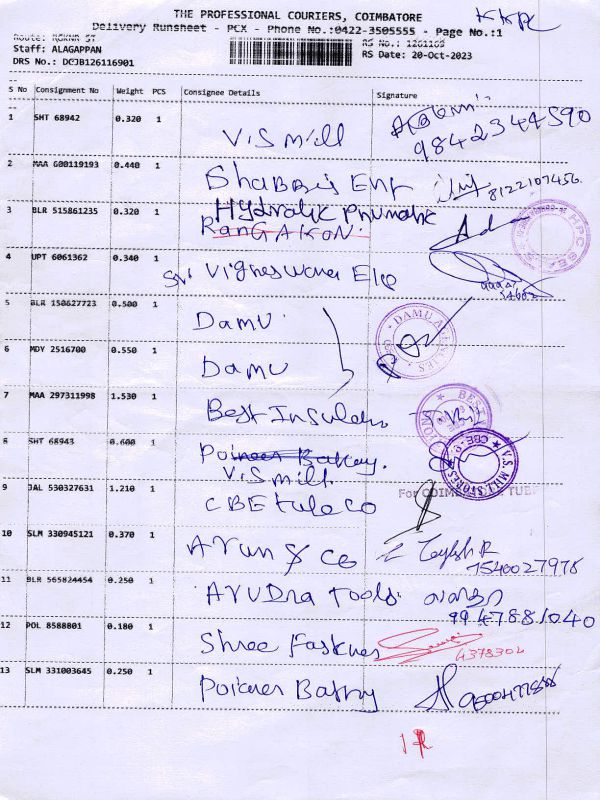 THE PROFESSIONAL COURIERS, COIMBATORE
KKPL
Delivery Runsheet - PCX - Phone No.:0422-3505555 - Page No.:1
Route: RGKNR ST RS No.: 1261169
Staff: ALAGAPPAN RS Date: 20-Oct-2023
DRS No.: DCJB126116901
S No Consignment No Weight PCS Consignee Details Signature
1 SHT 68942 0.320 1 V.S mill 9842344590
2 MAA 600119193 0.440 1 Shabbis Ent 8122107456.
3 BLR 515861235 0.320 1 Hydralic Pnumatic
RanGAKON. HPC
4 UPT 6061362 0.340 1 Sri Vigneswara Ele
5 BLR 150627723 0.500 1 Damu DAMU
6 MDY 2516700 0.550 1 Damu
7 MAA 297311998 1.530 1 Best Insulators BEST
8 SHT 68943 0.600 1 Poineer Battery.
V.S mill. V.S. MILL STORES CBE
9 JAL 530327631 1.210 1 CBE tube co For COIMBATORE TUBE
10 SLM 330945121 0.370 1 Arun & Co
11 BLR 565824454 0.250 1 Arudra Tools. 9947881040
12 POL 8588001 0.180 1 Shree Fastner 4378302
13 SLM 331003645 0.250 1 Poicner Battry